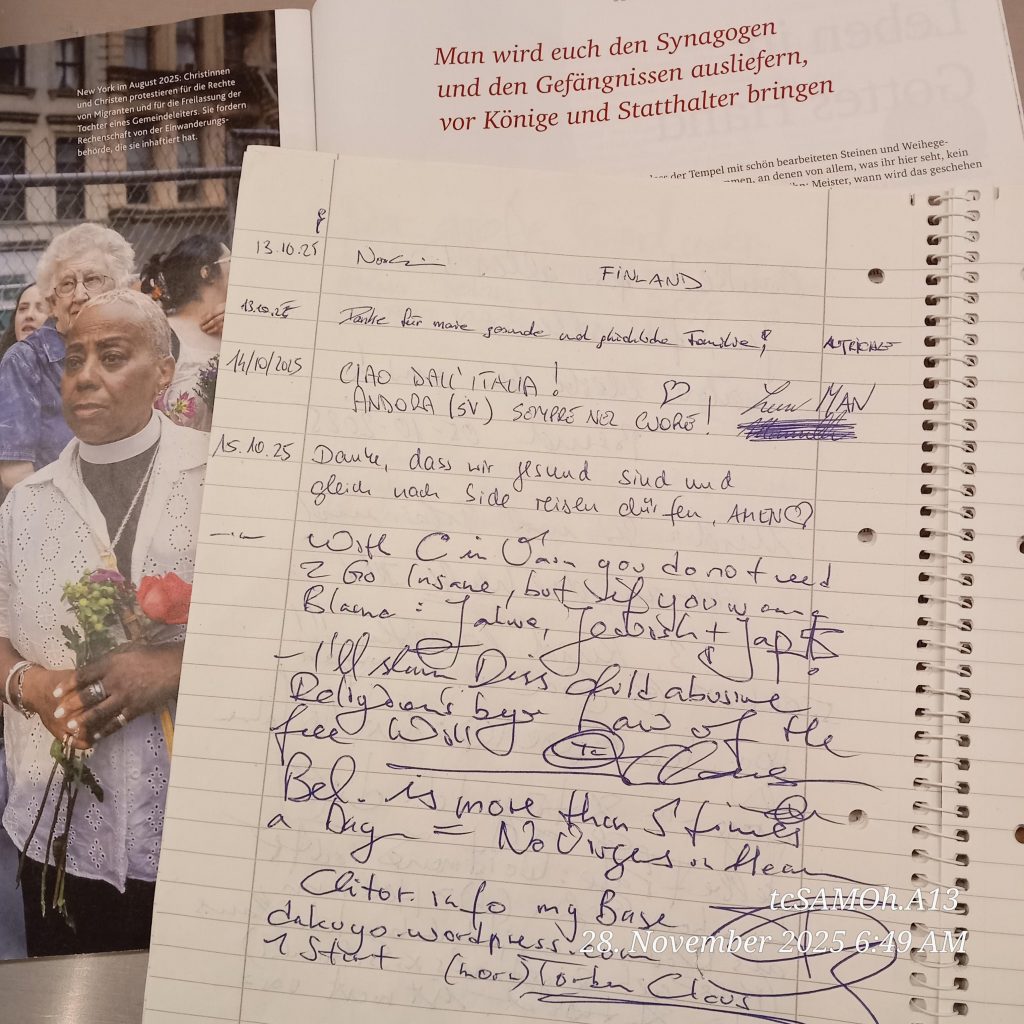 New York im August 2025: Christinnen
und Christen protestieren für die Rechte
von Migranten und für die Freilassung der
Tochter eines Gemeindeleiters. Sie fordern
Rechenschaft von der Einwanderungs-
behörde, die sie inhaftiert hat.
Man wird euch den Synagogen
und den Gefängnissen ausliefern,
vor Könige und Statthalter bringen
der Tempel mit schön bearbeiteten Steinen und Weihege-
an denen von allem, was ihr hier seht, kein
Meister, wann wird das geschehen
13.10.25 FINLAND
13.10.25 Danke für meine gesunde und glückliche Familie!
14/10/2025 CIAO DALL'ITALIA!
ANDORA (SV) SEMPRE NEL CUORE! MAN
15.10.25 Danke, dass wir gesund sind und
gleich nach Side reisen dürfen, AMEN♡
With C in you do not need
2 Go Insane, but if you wanna
Blame: Jahwe, +
- I'll Diss child abusive
Religion's Law of the
free Will
Bel. is more than 5 times
a Day = No in
Clitor.info my Base
dakuyo.wordpress.com
1 Start (more) Torben Claus
tcSAMOh.A13
28. November 2025 6:49 AM